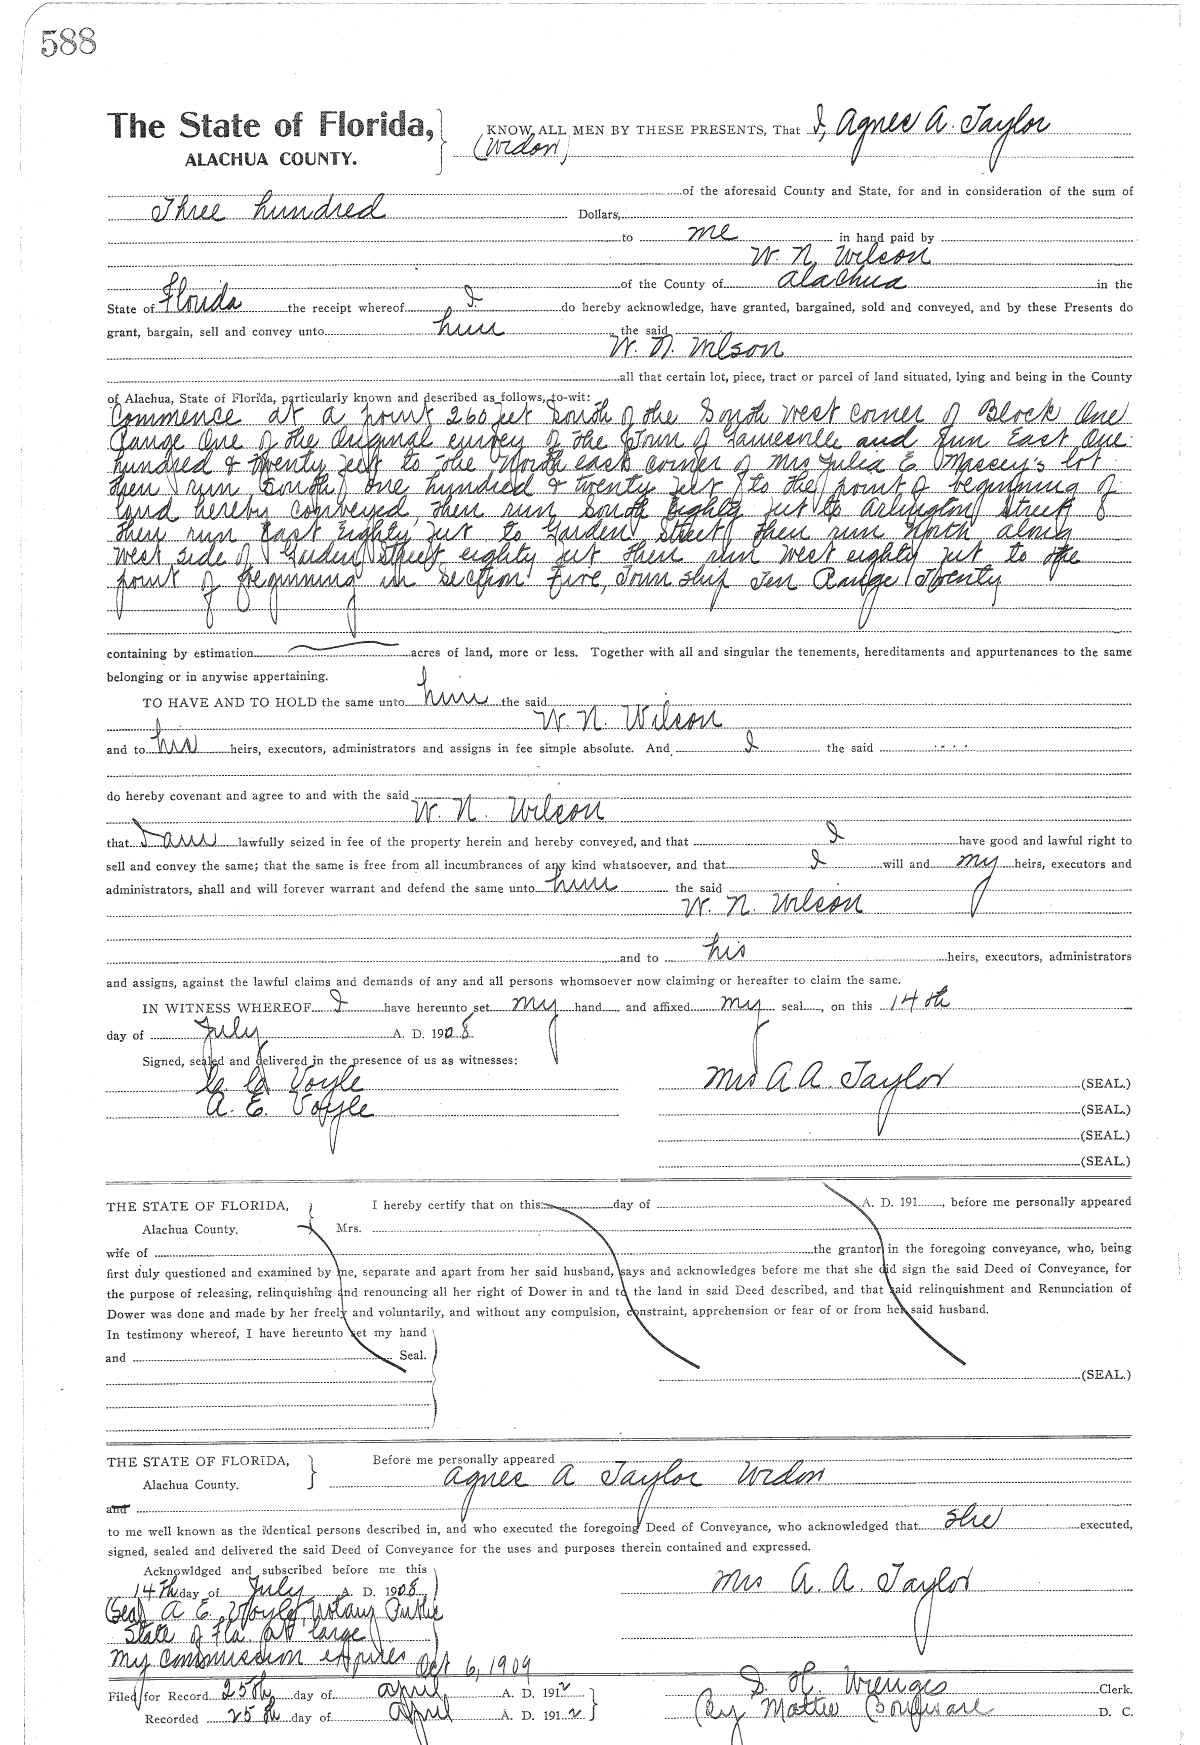 588
The State of Florida, KNOW ALL MEN BY THESE PRESENTS, That I, Agnes A. Taylor
ALACHUA COUNTY. (Widow)
of the aforesaid County and State, for and in consideration of the sum of
Three hundred Dollars,
to me in hand paid by
W. N. Wilson
of the County of Alachua in the
State of Florida the receipt whereof I do hereby acknowledge, have granted, bargained, sold and conveyed, and by these Presents do
grant, bargain, sell and convey unto him the said
W. N. Wilson
all that certain lot, piece, tract or parcel of land situated, lying and being in the County
of Alachua, State of Florida, particularly known and described as follows, to-wit:
Commence at a point 260 feet South of the South west corner of Block One
Range One of the Original survey of the Town of Gainesville and run East One
hundred & twenty feet to the North east corner of Mrs Julia E. Massey's lot
then run South one hundred & twenty feet to the point of beginning of
land hereby conveyed, then run South Eighty feet to Arlington Street
then run East Eighty feet to Garden Street then run North along
West side of Garden Street eighty feet then run west eighty feet to the
point of beginning in Section Five, Town ship Ten Range Twenty
containing by estimation acres of land, more or less. Together with all and singular the tenements, hereditaments and appurtenances to the same
belonging or in anywise appertaining.
TO HAVE AND TO HOLD the same unto him the said
W. N. Wilson
and to his heirs, executors, administrators and assigns in fee simple absolute. And I the said
do hereby covenant and agree to and with the said
W. N. Wilson
that I am lawfully seized in fee of the property herein and hereby conveyed, and that I have good and lawful right to
sell and convey the same; that the same is free from all incumbrances of any kind whatsoever, and that I will and my heirs, executors and
administrators, shall and will forever warrant and defend the same unto him the said
W. N. Wilson
and to his heirs, executors, administrators
and assigns, against the lawful claims and demands of any and all persons whomsoever now claiming or hereafter to claim the same.
IN WITNESS WHEREOF I have hereunto set my hand and affixed my seal, on this 14th
day of July A. D. 1908
Signed, sealed and delivered in the presence of us as witnesses:
Voyle Mrs A A. Taylor (SEAL.)
A. E. Voyle (SEAL.)
(SEAL.)
(SEAL.)
THE STATE OF FLORIDA, I hereby certify that on this day of A. D. 191, before me personally appeared
Alachua County. Mrs.
wife of the grantor in the foregoing conveyance, who, being
first duly questioned and examined by me, separate and apart from her said husband, says and acknowledges before me that she did sign the said Deed of Conveyance, for
the purpose of releasing, relinquishing and renouncing all her right of Dower in and to the land in said Deed described, and that said relinquishment and Renunciation of
Dower was done and made by her freely and voluntarily, and without any compulsion, constraint, apprehension or fear of or from her said husband.
In testimony whereof, I have hereunto set my hand
and Seal.
(SEAL.)
THE STATE OF FLORIDA, Before me personally appeared
Alachua County. Agnes A Taylor Widow
and
to me well known as the identical persons described in, and who executed the foregoing Deed of Conveyance, who acknowledged that she executed,
signed, sealed and delivered the said Deed of Conveyance for the uses and purposes therein contained and expressed.
Acknowldged and subscribed before me this
14th day of July A. D. 1908 Mrs A. A. Taylor
(Seal) A E. Voyle, Notary Public
State of Fla. At large
My Commission expires Oct 6, 1909
Filed for Record 25th day of April A. D. 1912 S. H. Wienges Clerk.
Recorded 25th day of April A. D. 1912 By Mattie D. C.